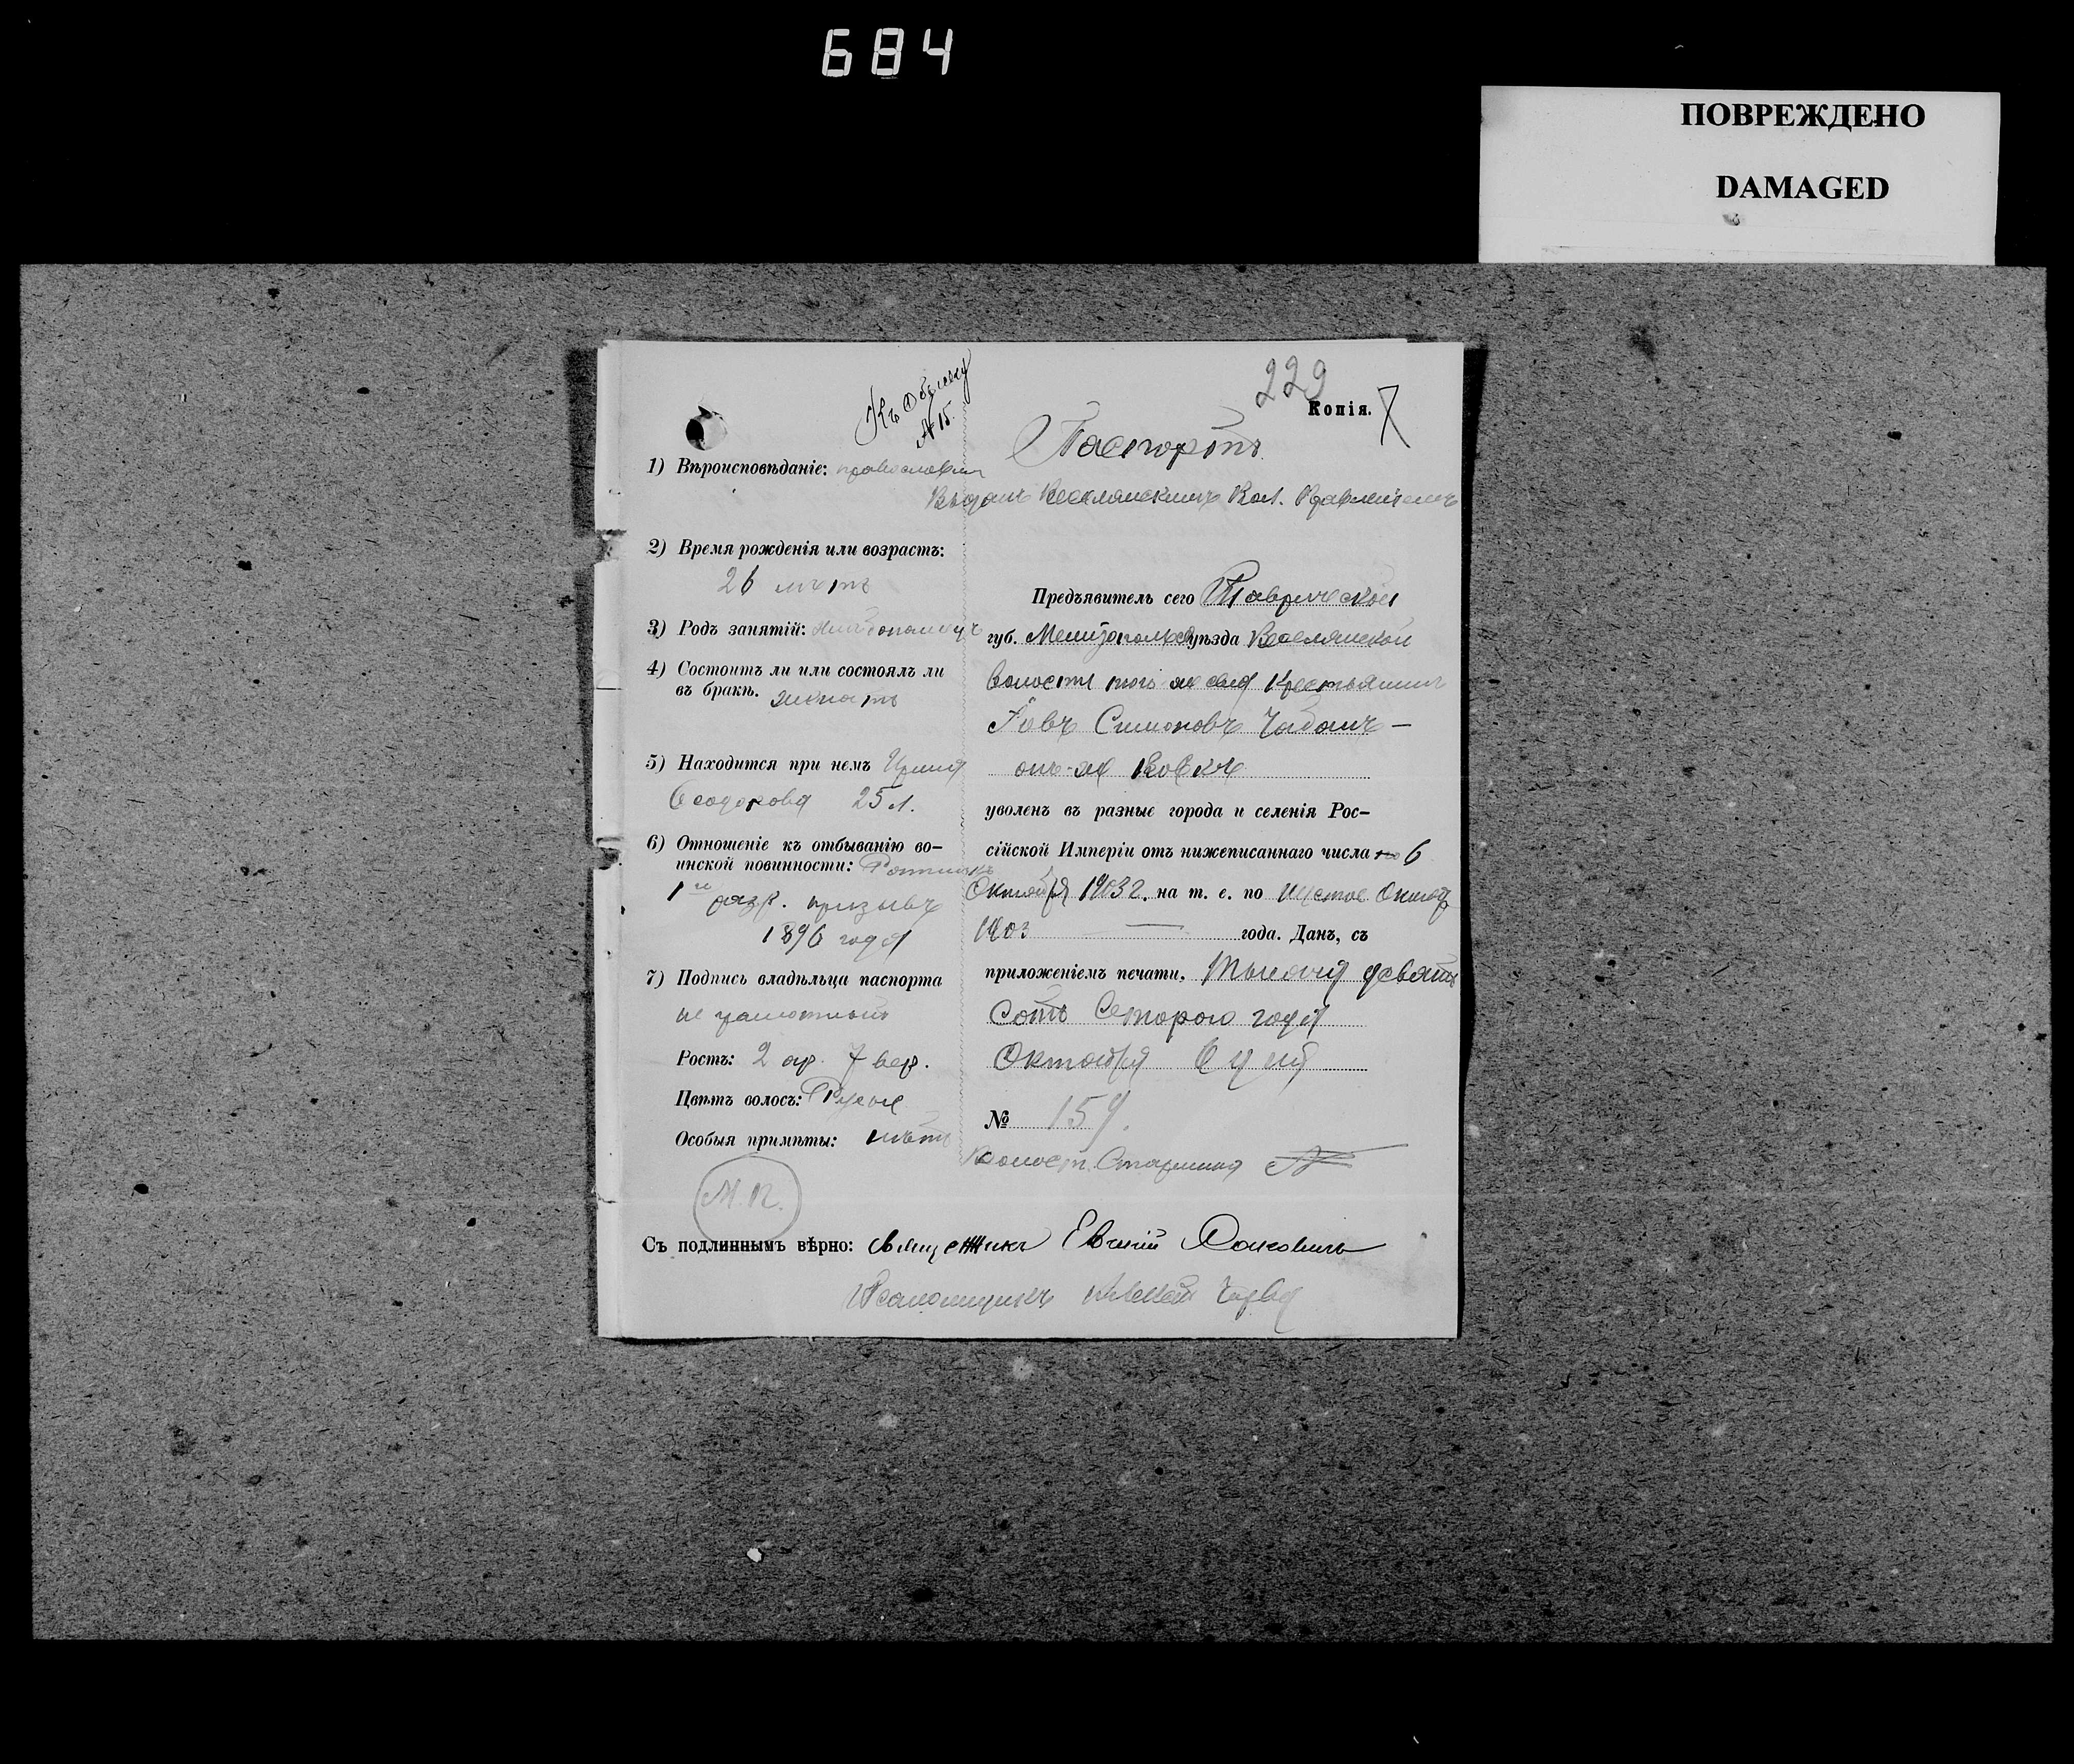 684
ПОВРЕЖДЕНО
DAMAGED
229
Копія.
Къ Обыску
№ 15.
Паспортъ
1) Вѣроисповѣданіе: православн
Выданъ Веселянскимъ Вол. Правленіемъ
2) Время рожденія или возрастъ:
26 лѣтъ
3) Родъ занятій: хлѣбопашецъ
4) Состоитъ ли или состоялъ ли
въ бракѣ. женатъ
5) Находится при немъ Ирина
Феодорова 25 л.
6) Отношеніе къ отбыванію во-
инской повинности: Ратникъ
1го разр. призывъ
1896 года
7) Подпись владѣльца паспорта
не грамотный
Ростъ: 2 ар. 7 вер.
Цвѣтъ волосъ: Русые
Особыя примѣты: нѣтъ
М.П.
Предъявитель сего Таврической
губ. Мелитопольск уѣзда Веселянской
волости того же села крестьянин
Іовъ Симоновъ Чабанъ —
онъ-же Вовкъ
уволенъ въ разные города и селенія Рос-
сійской Имперіи отъ нижеписаннаго числа 6
Октября 1903 г. на т. е. по шестое Октяб
1903 — года. Данъ, съ
приложеніемъ печати. Тысяча девять
Сотъ второго года
Октября 6 дня
№ 159.
Волост. Старшина
Съ подлиннымъ вѣрно: священникъ Евгеній
Псаломщикъ